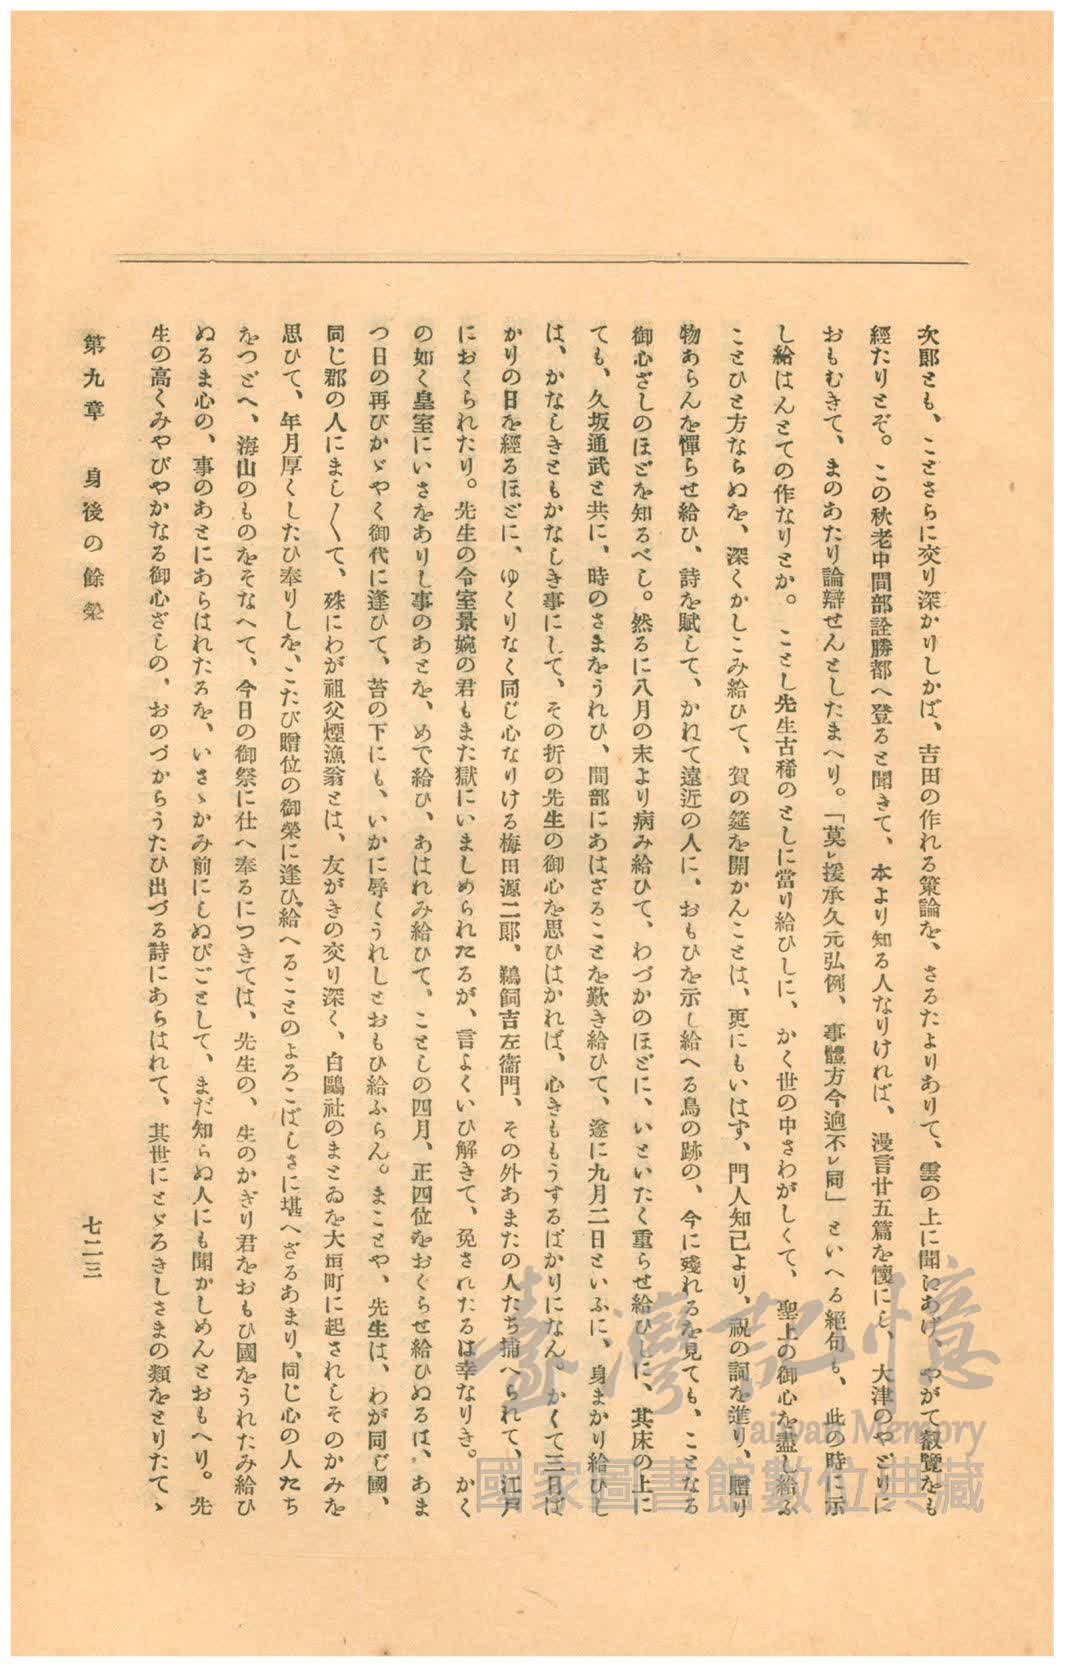 次郎とも、ことさらに交り深かりしかば、吉田の作れる策論を、さるたよりありて、雲の上に聞にあげ、やがて叡覽をも
經たりとぞ。この秋老中間部詮勝都へ登ると聞きて、本より知る人なりければ、漫言廿五篇を懷にし、大津のやどりに
おもむきて、まのあたり論辯せんとしたまへり。「莫㆑援承久元弘例、事體方今逈不㆑同」といへる絕句も、此の時に示
し給はんとての作なりとか。ことし先生古稀のとしに當り給ひしに、かく世の中さわがしくて、聖上の御心を盡し給ふ
ことひと方ならぬを、深くかしこみ給ひて、賀の筵を開かんことは、更にもいはず、門人知己より、祝の詞を進り、贈り
物あらんを憚らせ給ひ、詩を賦して、かねて遠近の人に、おもひを示し給へる鳥の跡の、今に殘れるを見ても、ことなる
御心ざしのほどを知るべし。然るに八月の末より病み給ひて、わづかのほどに、いといたく重らせ給ひしに、其床の上に
ても、久坂通武と共に、時のさまをうれひ、間部にあはざることを歎き給ひて、遂に九月二日といふに、身まかり給ひし
は、かなしきともかなしき事にして、その折の先生の御心を思ひはかれば、心きももうするばかりになん。かくて三日ば
かりの日を經るほどに、ゆくりなく同じ心なりける梅田源二郎、鵜飼吉左衞門、その外あまたの人たち捕へられて、江戸
におくられたり。先生の令室景婉の君もまた獄にいましめられたるが、言よくいひ解きて、免されたるは幸なりき。かく
の如く皇室にいさをありし事のあとを、めで給ひ、あはれみ給ひて、ことしの四月、正四位をおくらせ給ひぬるは、あま
つ日の再びかゞやく御代に逢ひて、苔の下にも、いかに辱くうれしとおもひ給ふらん。まことや、先生は、わが同じ國、
同じ郡の人にまし〱て、殊にわが祖父煙漁翁とは、友がきの交り深く、白鷗社のまとゐを大垣町に起されしそのかみを
思ひて、年月厚くしたひ奉りしを、こたび贈位の御榮に逢ひ給へることのよろこばしさに堪へざるあまり、同じ心の人たち
をつどへ、海山のものをそなへて、今日の御祭に仕へ奉るにつきては、先生の、生のかぎり君をおもひ國をうれたみ給ひ
ぬるま心の、事のあとにあらはれたるを、いさゝかみ前にしぬびごとして、まだ知らぬ人にも聞かしめんとおもへり。先
生の高くみやびやかなる御心ざしの、おのづからうたひ出づる詩にあらはれて、其世にとゞろきしさまの類をとりたてゝ
第九章　身後の餘榮
七二三
臺灣記憶
Taiwan Memory
國家圖書館數位典藏